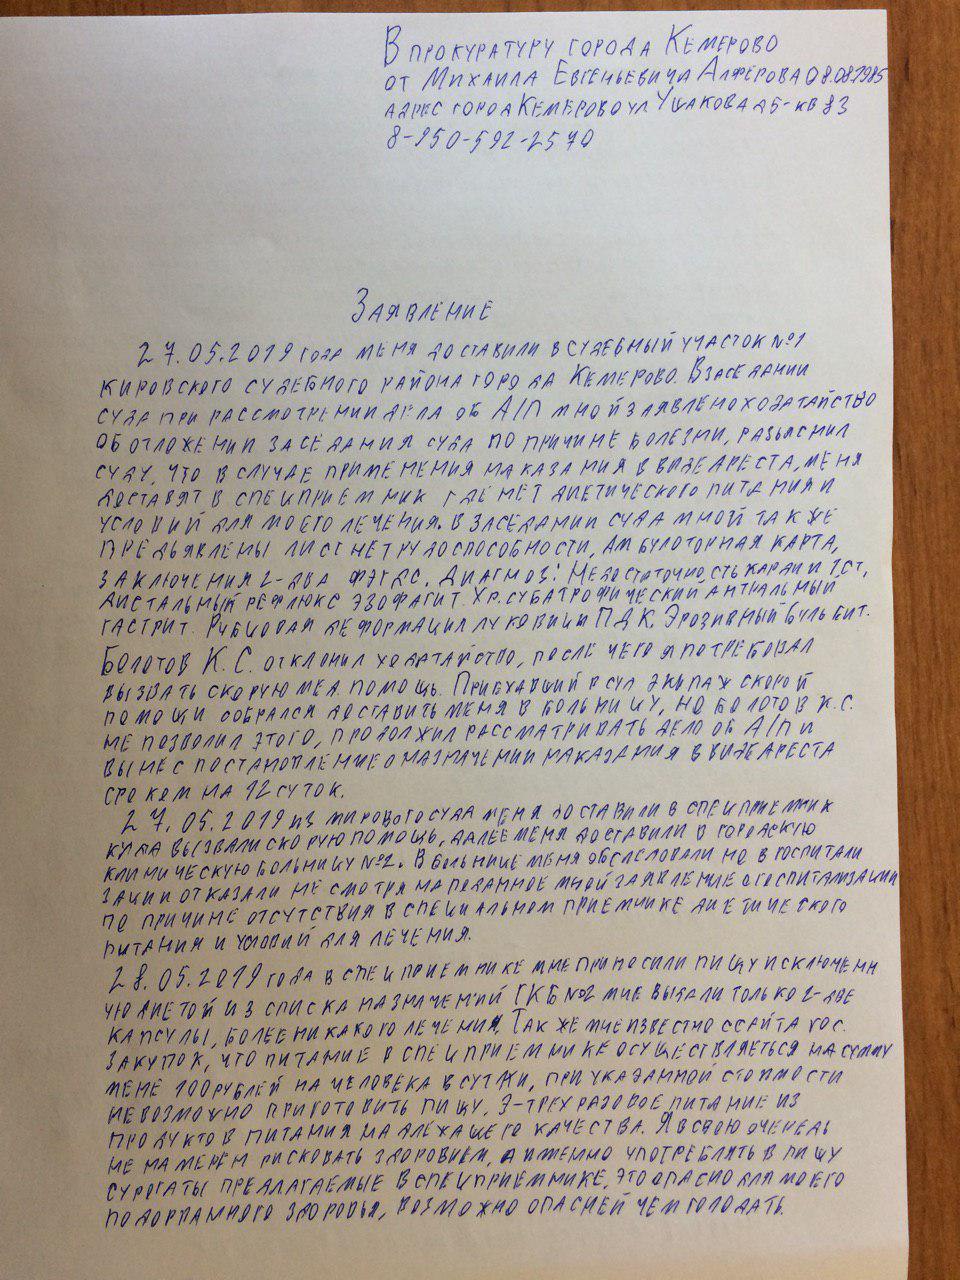 В прокуратуру города Кемерово
от Михаила Евгеньевича Алферова 08.08.1985
адрес город Кемерово ул Ушакова д5- кв 83
8-950-592-2570
Заявление
27.05.2019 года меня доставили в судебный участок №1
Кировского судебного района города Кемерово. В заседании
суда при рассмотрении дела об А/П мной заявлено ходатайство
об отложении заседания суда по причине болезни, разьяснил
суду, что в случае применения наказания в виде ареста, меня
доставят в спецприемник где нет диетического питания и
условий для моего лечения. В заседании суда мной также
предьявлены лист нетрудоспособности, амбулоторная карта,
заключения 2-два ФЭГДС. Диагноз: Недостаточность кардии 1ст,
дистальный рефлюкс эзофагит. Хр. субатрофический антральный
гастрит. Рубцовая деформация луковици ПДК. Эрозивный бульбит.
Болотов К.С. отклонил ходатайство, после чего я потребовал
вызвать скорую мед. помощь. Приехавший в суд экипаж скорой
помощи собрался доставить меня в больницу, но Болотов К.С.
не позволил этого, продолжил рассматривать дело об А/П и
вынес постановление о назначении наказания в виде ареста
сроком на 12 суток.
27.05.2019 из мирового суда меня доставили в спецприемник
куда вызвали скорую помощь, далее меня доставили в городскую
клиническую больницу №2. В больнице меня обследовали но в госпитали
зации отказали не смотря на поданное мной заявление о госпитализации
по причине отсутствия в специальном приемнике диетического
питания и условий для лечения.
28.05.2019 года в спецприемнике мне приносили пищу исключенн
ую диетой из списка назначений ГКБ №2 мне выдали только 2-две
капсулы, более никакого лечения. Также мне известно с сайта гос.
закупок, что питание в спецприемнике осуществляеться на сумму
мене 100 рублей на человека в сутки, при указанной стоимости
невозможно приготовить пищу. 3-трех разовое питание из
продуктов питания надлежащего качества. Я в свою очередь
не намерен рисковать здоровием, а именно употреблять в пищу
сурогаты предлагаемые в спецприемнике, это опасно для моего
подорванного здоровья, возможно опасней чем голодать.